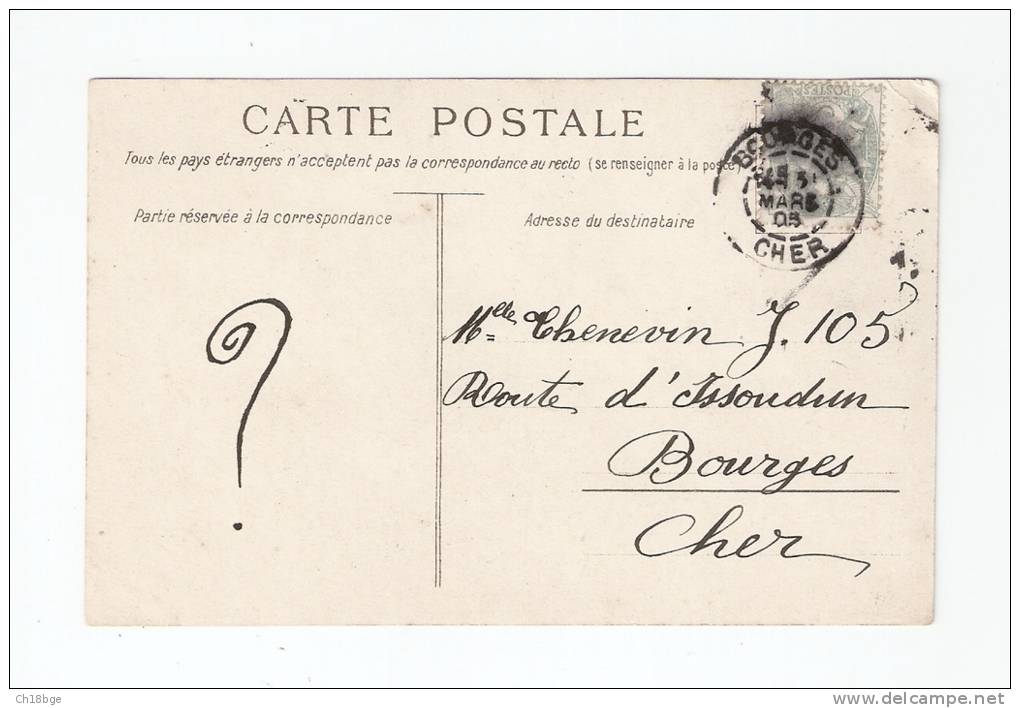 CARTE POSTALE
Tous les pays étrangers n'acceptent pas la correspondance au recto (se renseigner à la poste)
Partie réservée à la correspondance
Adresse du destinataire
POSTES
BOURGES
MARS
05
CHER
?
Melle Thenevin J. 105
Route d'Issoudun
Bourges
Cher
Ch18bge
www.delcampe.net